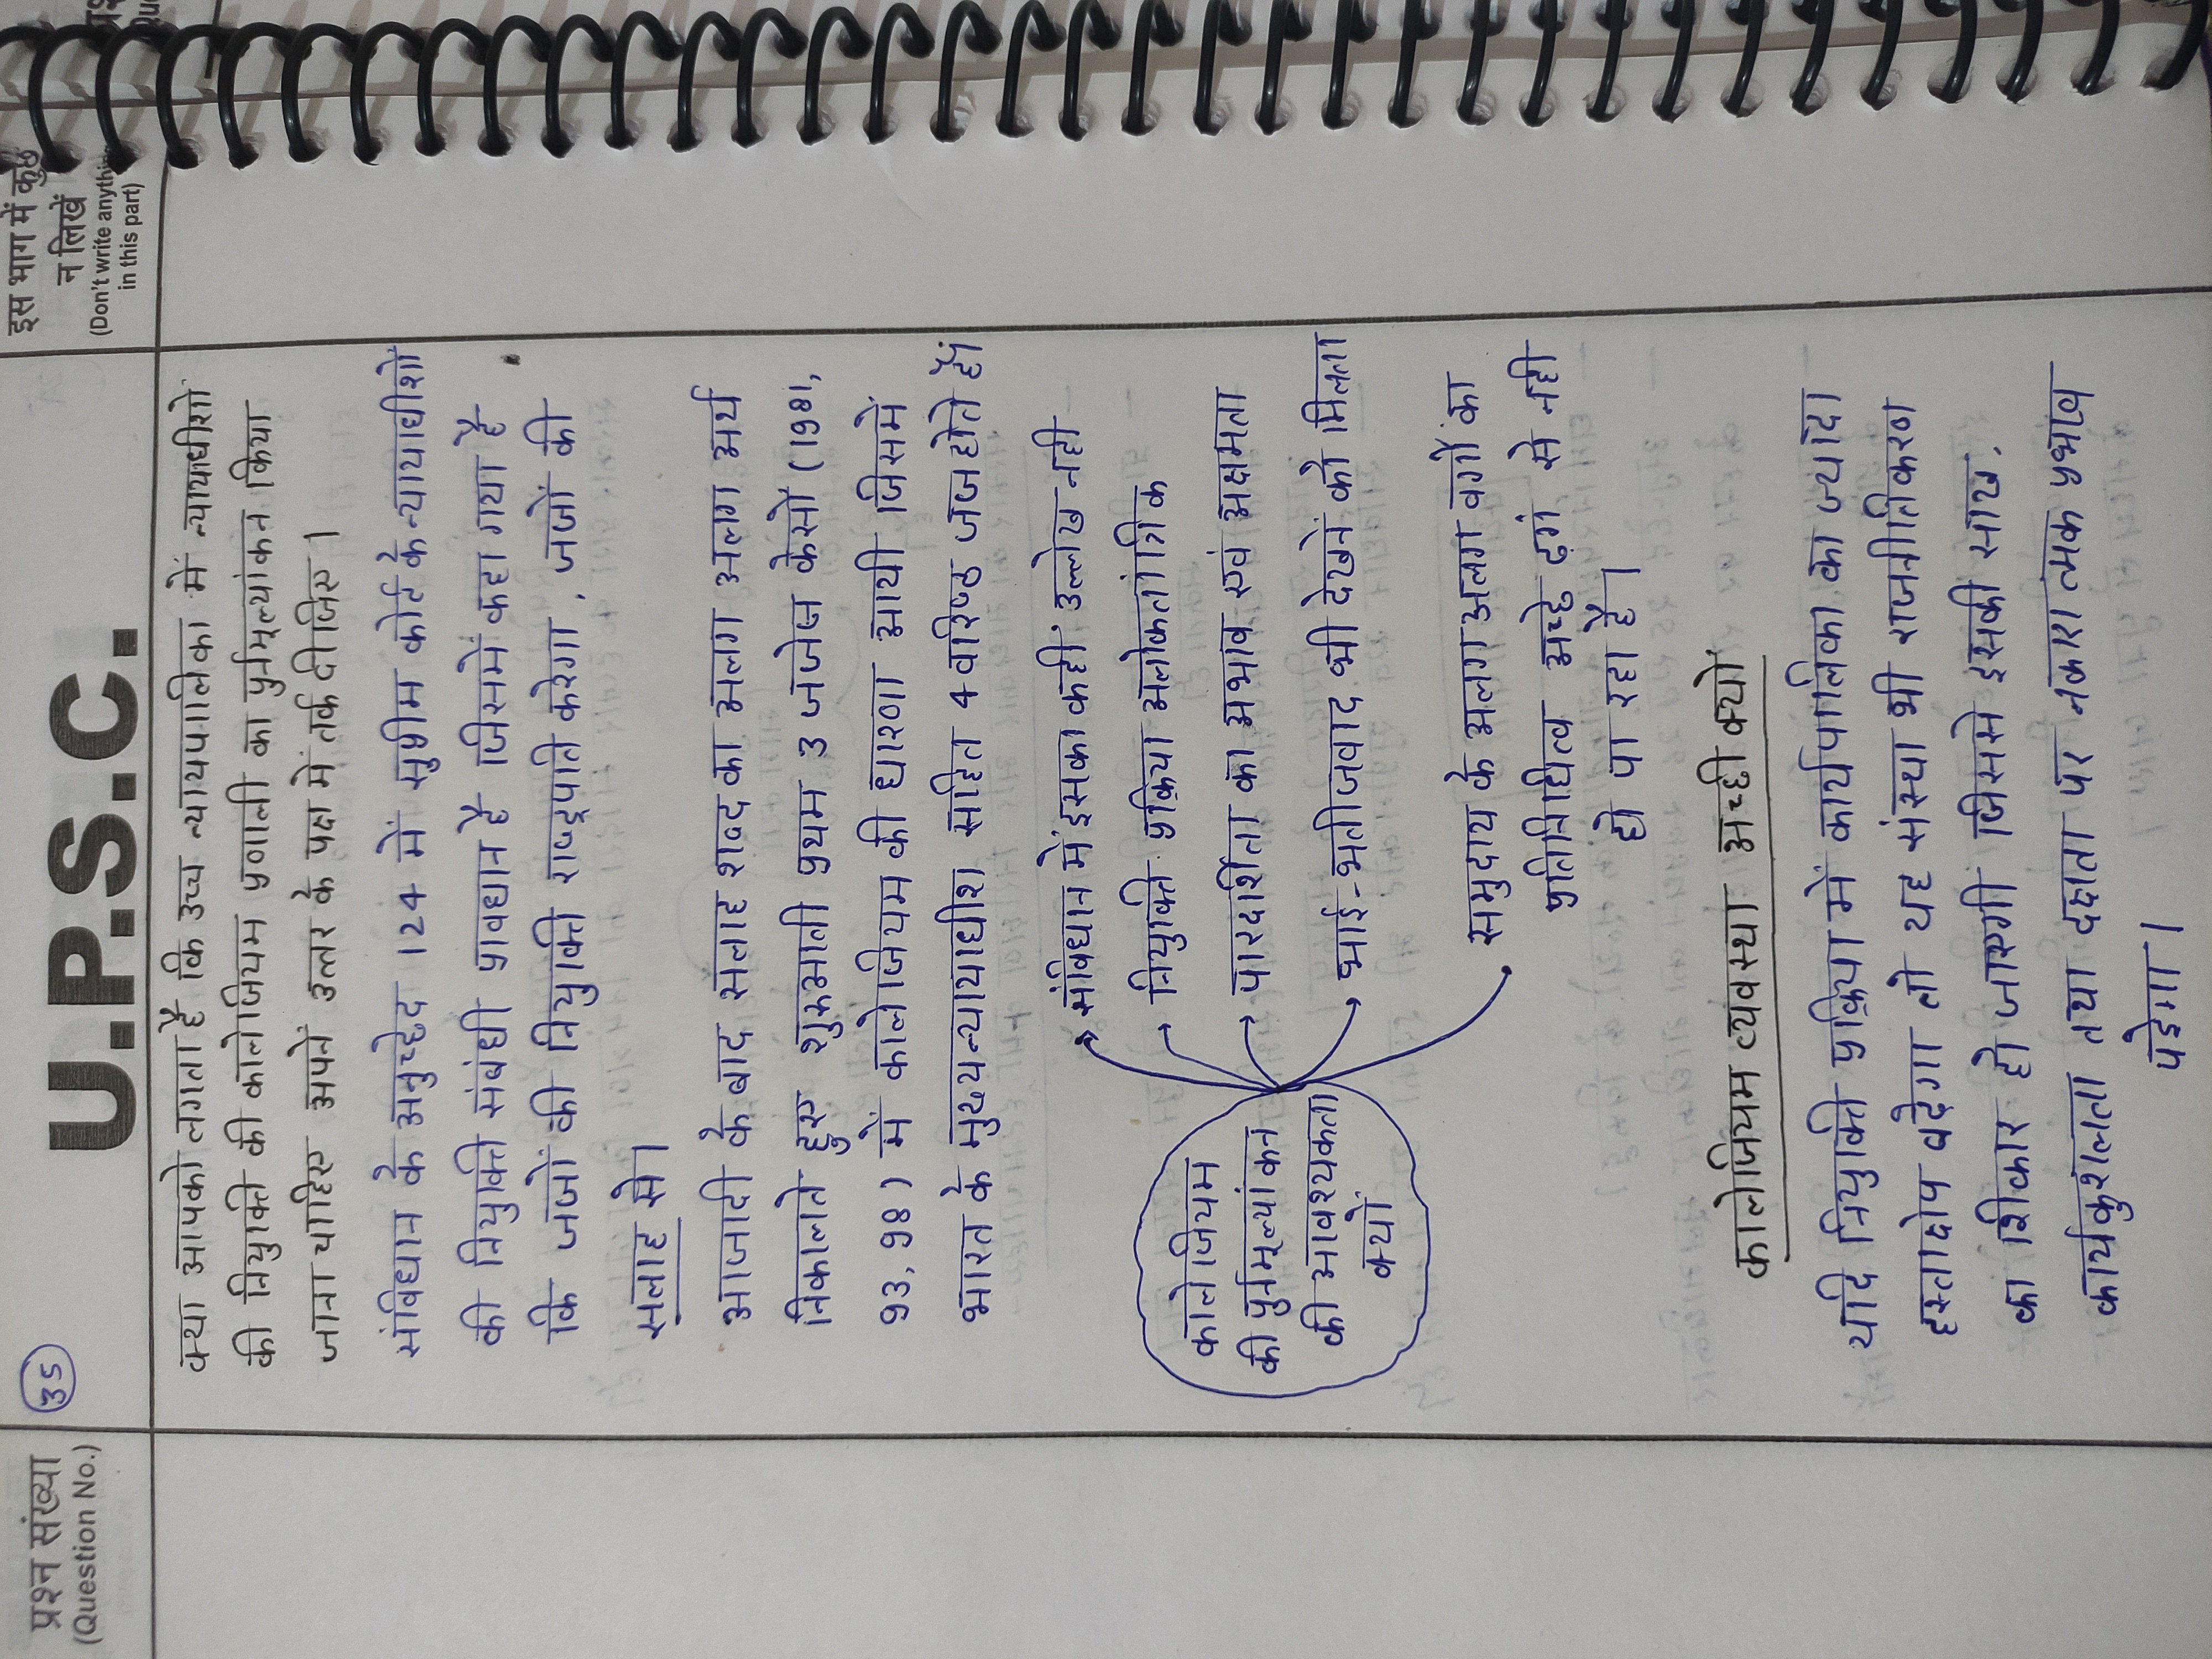 प्रश्न संख्या
(Question No.)
35
U.P.S.C.
इस भाग में कुछ
न लिखें
(Don't write anything
in this part)
क्या आपको लगता है कि उच्च न्यायपालिका में न्यायाधीशों
की नियुक्ति की कालेजियम प्रणाली का पुर्नमूल्यांकन किया
जाना चाहिए अपने उत्तर के पक्ष में तर्क दीजिए।
संविधान के अनुच्छेद 124 में सुप्रीम कोर्ट के न्यायाधीशों
की नियुक्ति संबंधी प्रावधान है जिसमें कहा गया है
कि जजों की नियुक्ति राष्ट्रपति करेगा, जजों की
सलाह से।
आजादी के बाद सलाह शब्द का अलग अलग अर्थ
निकालते हुए शुरुआती प्रथम 3 जजेज केसों (1981,
93, 98) में कालेजियम की धारणा आयी जिसमें
भारत के मुख्यन्यायाधीश सहित 4 वरिष्ठ जज होते हैं।
कालेजियम
की पुर्नमूल्यांकन
की आवश्यकता
क्यों
संविधान में इसका कही उल्लेख नही
नियुक्ति प्रक्रिया अलोकतांत्रिक
पारदर्शिता का अभाव एवं अक्षमता
भाई-भतीजवाद भी देखने को मिलता
समुदाय के अलग अलग वर्गों का
प्रतिनिधित्व अच्छे ढ़गं से नही
हो पा रहा है।
कालेजियम व्यवस्था अच्छी क्यों
यदि नियुक्ति प्रक्रिया में कार्यपालिका का ज्यादा
हस्तक्षेप बढ़ेगा तो यह संस्था भी राजनीतिकरण
का शिकार हो जाएगी जिससे इसकी साख,
कार्यकुशलता तथा दक्षता पर नकारात्मक प्रभाव
पड़ेगा।